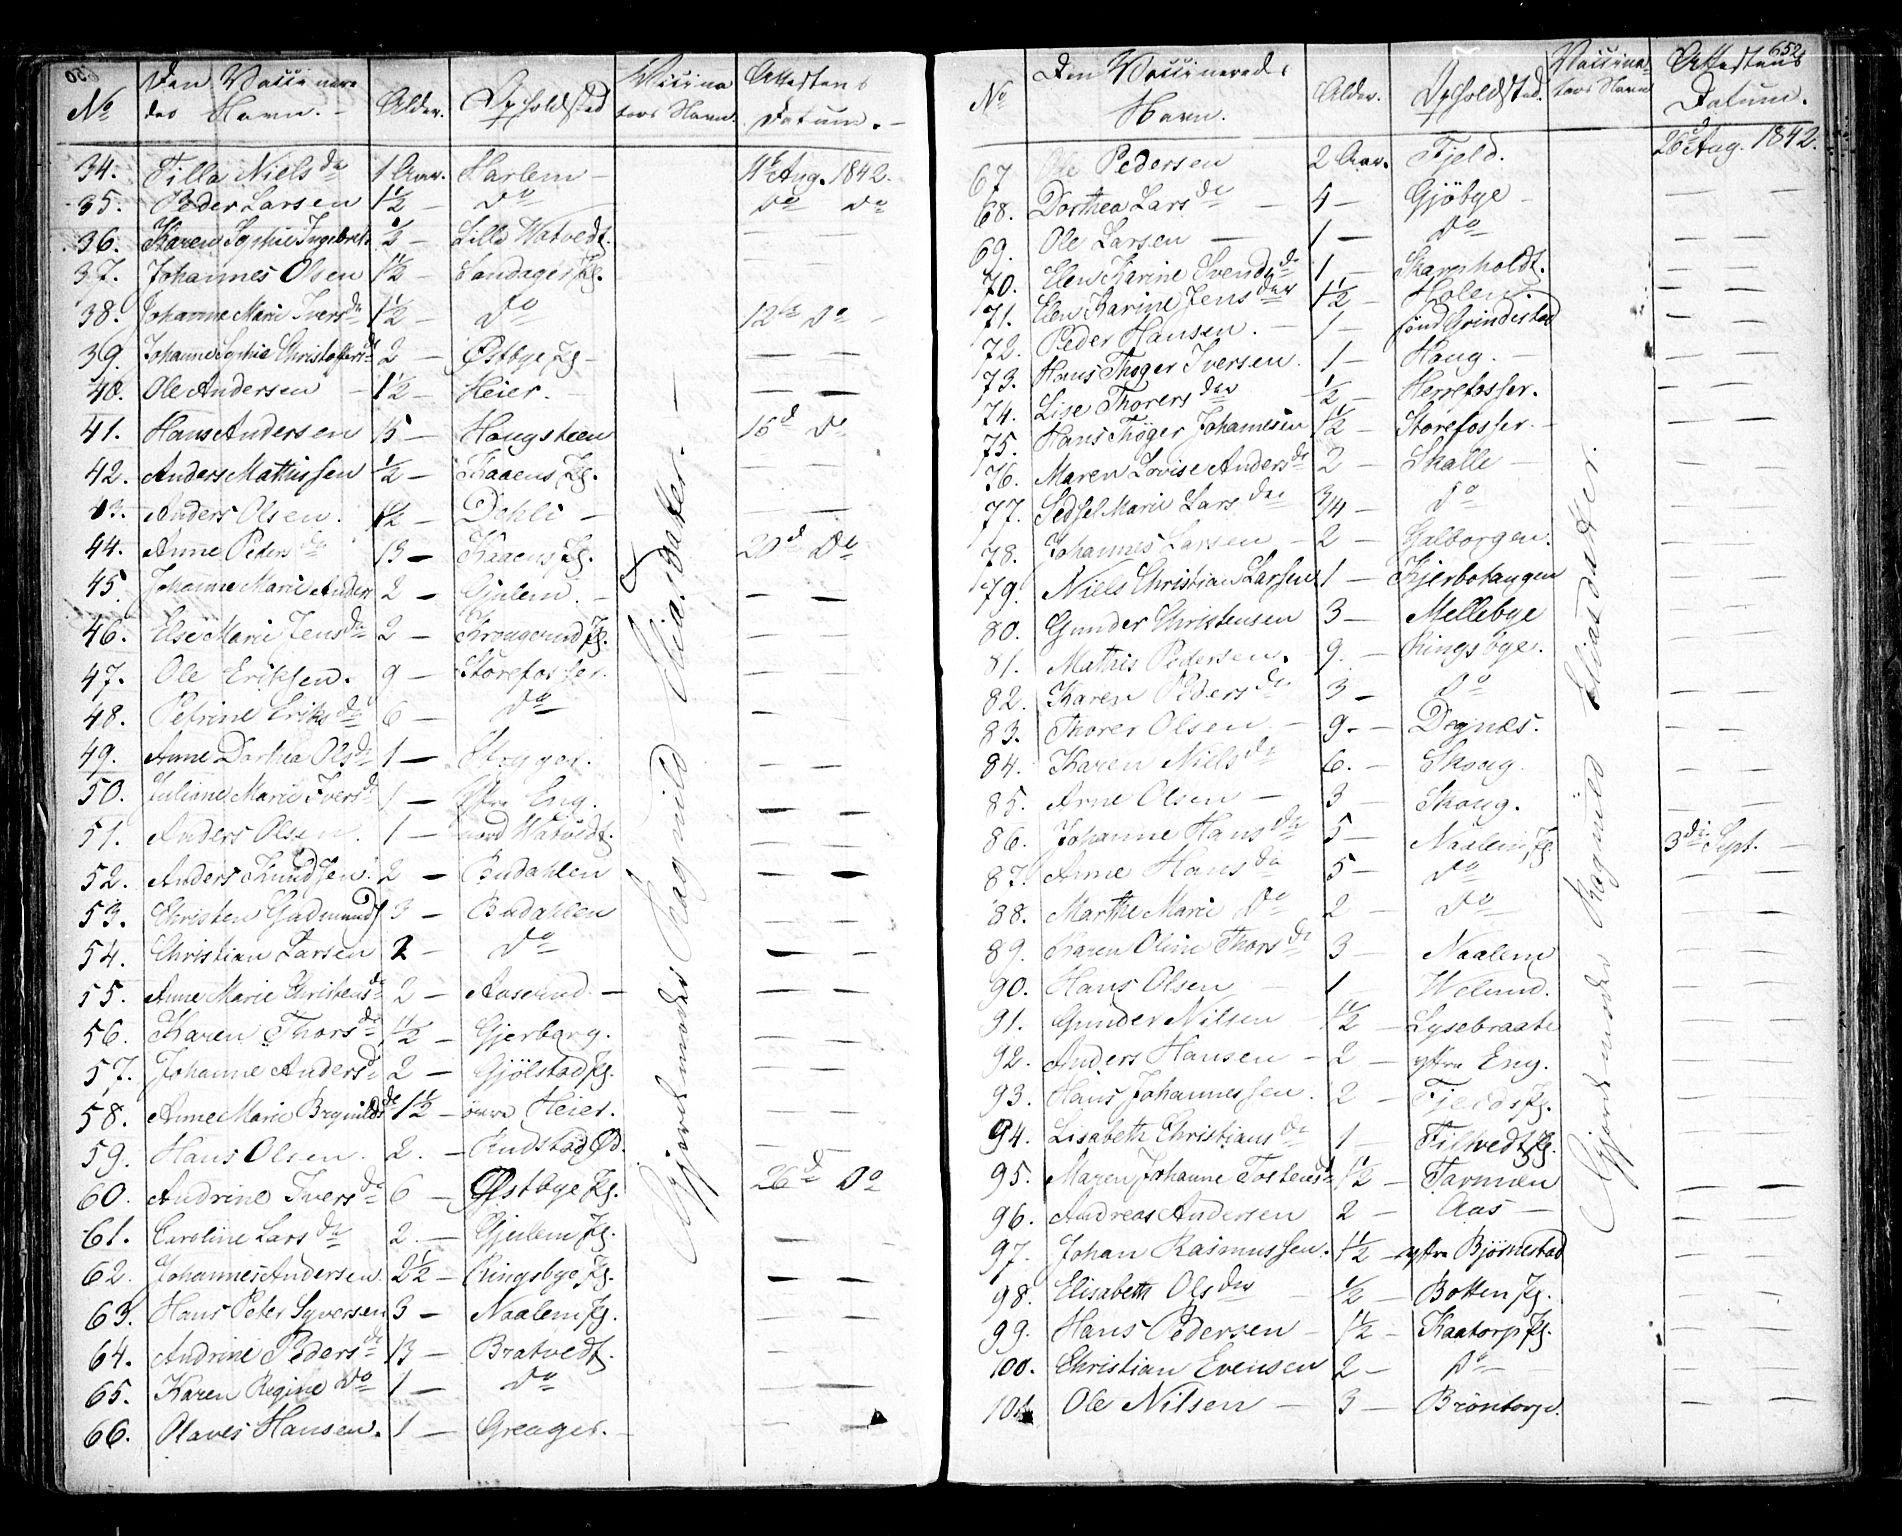 650
No
Den Vaccinere
des Navn.
Alder.
Opholdsted
Vaccina
tors Navn.
Attestens
Datum.
34. Tilla Nielsdr 1 Aar. Harlem 11te Aug. 1842.
35. Peder Larsen 1½ — Do — Do Do
36. Karen Sophie Ingebrets ½ — Lille Watvedt.
37. Johannes Olsen 1½ — Sandager Eg.
38. Johanne Marie Iversdr 1½ — Do 12te Do
39. Johanne Sophie Christoffersdr 2 — Østbye Eg —
40. Ole Andersen 1½ — Heier. —
41. Hans Andersen 15 — Hougsteen 16d Do
42. Anders Mathissen ½ — Kaaens Eg.
43. Anders Olsen. 1½ — Dohli —
44. Anne Pedersdr 13 — Kaaens Eg. 20d Do
45. Johanne Marie Anders 2 — Gjulem. —
46. Else Marie Jensdr 2 — Krougsund Eg.
47. Ole Eriksen. 9 — Storefosser.
48. Petrine Eriksdr 6 — Do
49. Anne Dorthea Olsdr 1 —
50. Juliane Marie Iversdr 1 — Øfre Eng.
51. Anders Olsen. 1 — nord Watvedt.
52. Anders Knudsen. 2 — Budahlen
53. Christen Gudmunds 3 — Budahlen
54. Christian Larsen 2 — Do
55. Anne Marie Christensdr 2 — Aaserud —
56. Karen Thorsdr 1½ — Gjerberg.
57. Johanne Andersdr 2 — Gjölstad Eg.
58. Anne Marie Brynildsdr 1½ — övre Heier.
59. Hans Olsen. 2. — Rudstad Ød.
60. Andrine Iversdr 6 — Østbye Eg. 26d Do
61. Caroline Larsdr 2. — Gjeulem Eg.
62. Johannes Andersen. 2½ — Ringsbye Eg.
63. Hans Peter Syversen 3 — Naalem Eg.
64. Andrine Pedersdr 13 — Bratvedt.
65. Karen Regine Do 1 — Do
66. Olaves Hansen. 1 — Greager. —
Gjordemoder Ragnild Eliasdatter. —
652
No
Den Vaccinerede
Navn.
Alder.
Opholdsted.
Vaccina-
tors Navn
Attestens
Datum.
67. Ole Pedersen 2 Aar. Fjeld. 26d Aug. 1842.
68. Dorthea Larsdr — 4 — Gjöbye —
69. Ole Larsen — 1 — Do
70. Elen Karine Svendsdr 1 — Skarnholdt.
71. Elen Karine Jensdatter 1½ — Holen.
72. Peder Hansen. — 1 — sönd Grindestad
73. Hans Thøger Iversen. 1 — Houg. —
74. Lise Thorersdatter ½ — Herrefosser.
75. Hans Thöger Johannesen 1½ — Storefosser. —
76. Maren Lovise Andersdr 2 — Skalle —
77. Sidsel Marie Larsdatter ¾ — Do
78. Johannes Larsen — 2 — Galborgen.
79. Niels Christian Larsen 1 — Kjerbotangen
80. Gunder Christensen 3 — Mellebye
81. Mathis Pedersen. 9. — Ringsbye.
82. Karen Pedersdr 3 — Do
83. Thorer Olsen — 9. — Degnæs.
84. Karen Nielsdr 6. — Skoug.
85. Arne Olsen — 3 — Skoug.
86. Johanne Hansdr 5 — Naalem Eg 3die Sept. —
87. Anne Hansdr 5 — Do
88. Marthe Marie Do 2 — Do
89. Karen Oline Thorsdr 3 — Naalem
90. Hans Olsen — 1 Welund.
91. Gunder Nilsen — 1½ — Lysebraate
92. Anders Hansen — 2 — yttre Eng.
93. Hans Johannessen. 2 — Fjelds Eg.
94. Lisabeth Christiansdr 1 — Filtvedt Eg.
95. Maren Johanne Tostensd 1½ — Tarmen
96. Andreas Andersen 2 — Aas —
97. Johan Rasmussen. 1½ — yttre Bjørnestad
98. Elisabeth Olsdatter — ½ — Botten Eg.
99. Hans Pedersen — 1½ — Kaatorp Eg.
100. Christian Evensen 2 — Do
101. Ole Nilsen — 3 — Bröntorp.
Gjordemoder Ragnild Eliasdatter.